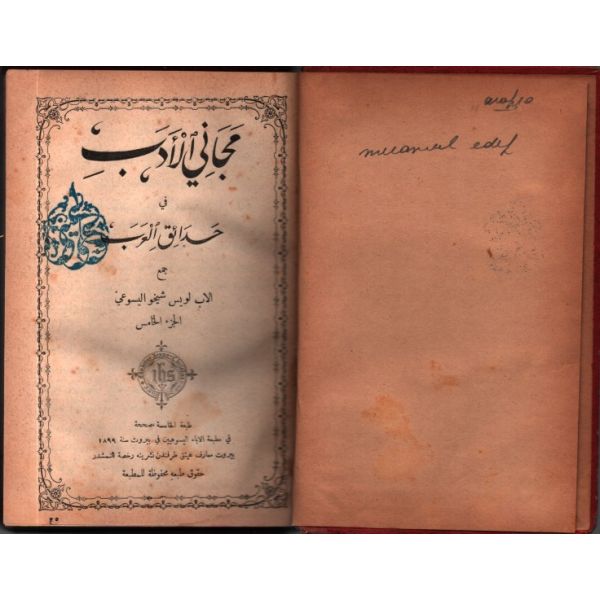 مجاني الأدب
في
حدائق العرب
جمع
الاب لويس شيخو اليسوعي
الجزء الخامس
ihs
طبعة خامسة مصححة
في مطبعة الآباء اليسوعيين في بيروت سنة ١٨٩٩
بيروت معارف هيئتى طرفندن نشرينه رخصة
حقوق طبعه محفوظة للمطبعة